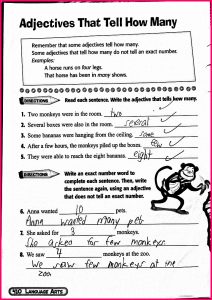 Adjectives That Tell How Many
Remember that some adjectives tell how many.
Some adjectives that tell how many do not tell an exact number.
Examples:
A horse runs on four legs.
That horse has been in many shows.
DIRECTIONS Read each sentence. Write the adjective that tells how many.
1. Two monkeys were in the room. two
2. Several boxes were also in the room. several
3. Some bananas were hanging from the ceiling. some
4. After a few hours, the monkeys piled up the boxes. few
5. They were able to reach the eight bananas. eight
DIRECTIONS Write an exact number word to
complete each sentence. Then, write
the sentence again, using an adjective
that does not tell an exact number.
6. Anna wanted 10 pets.
Anna wanted many pets
7. She asked for 3 monkeys.
She asked for few monkeys
8. We saw 4 monkeys at the zoo.
We saw few monkeys at the
zoo
LANGUAGE ARTS